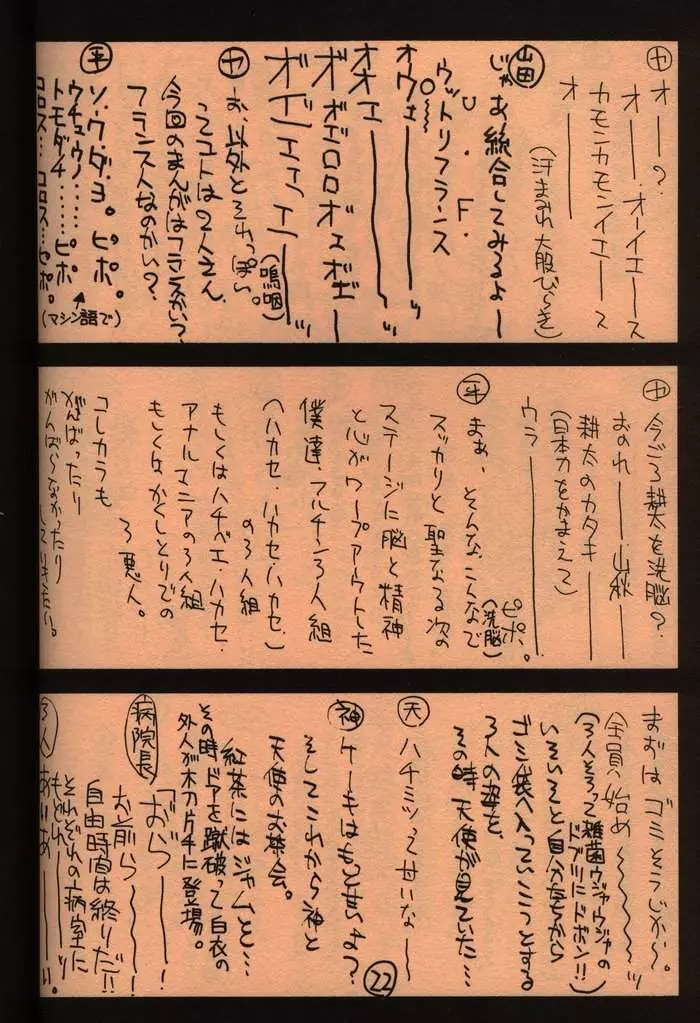 ヤ オーー?
オーー、オーイエース
カモンカモンイエーース
オーーーー
(汗まみれ大股びらき)
山田 じゃあ統合してみるよー
U.F.
O ウットリフランス
オウェーーーッ
オオェーーーッ
オボボエロロオェボェー
ボエエェェエーーーッ
(嗚咽)
ヤ お、以外とそれっぽい。
ってコトは2人さん、
今回のまんがはフランスかい?
フランス人なのかい?
平 ソ・ウ・ダ・ヨ。ピポ。
ウチュウノ……ピポ
トモダチ……ピポ。
コロス…コロス…ピポ。
(マシン語で)
ヤ 今ごろ耕太を洗脳?
おのれーー山秋ーー
耕太のカタキーー
(日本刀をかまえて)
ウラーーーーー
ピポ。
(洗脳)
平 まぁ、そんなこんなで
スッカリと聖なる次の
ステージに脳と精神
と心がワープアウトした
僕達、フルチン3人組
(ハカセ・ハカセ・ハカセ)
の3人組
もしくはハチベエ・ハカセ・
アナルマニアの3人組
もしくはかくしとりでの
3悪人。
コレカラも
がんばったり
がんばらなかったり
していきたい。
まずはゴミそうじから〜。
全員、始め〜〜〜〜ッ
(3人そろって雑菌ウジャウジャの
ドブ川にドボン!!)
いそいそと自分たちから
ゴミ袋へ入っていこうとする
3人の姿を、
その時天使が見ていた…
天 ハチミツって甘いな〜
神 ケーキはもっと甘いよ?
そしてこれから神と
天使のお茶会。
紅茶にはジャムと…
その時ドアを蹴破って白衣の
外人が木刀片手に登場。
病院長 「おらーーー!
お前らーーー!
自由時間は終りだ!!
それぞれの病室に
もどれーーーッ
3人 あいあーーーい。
22